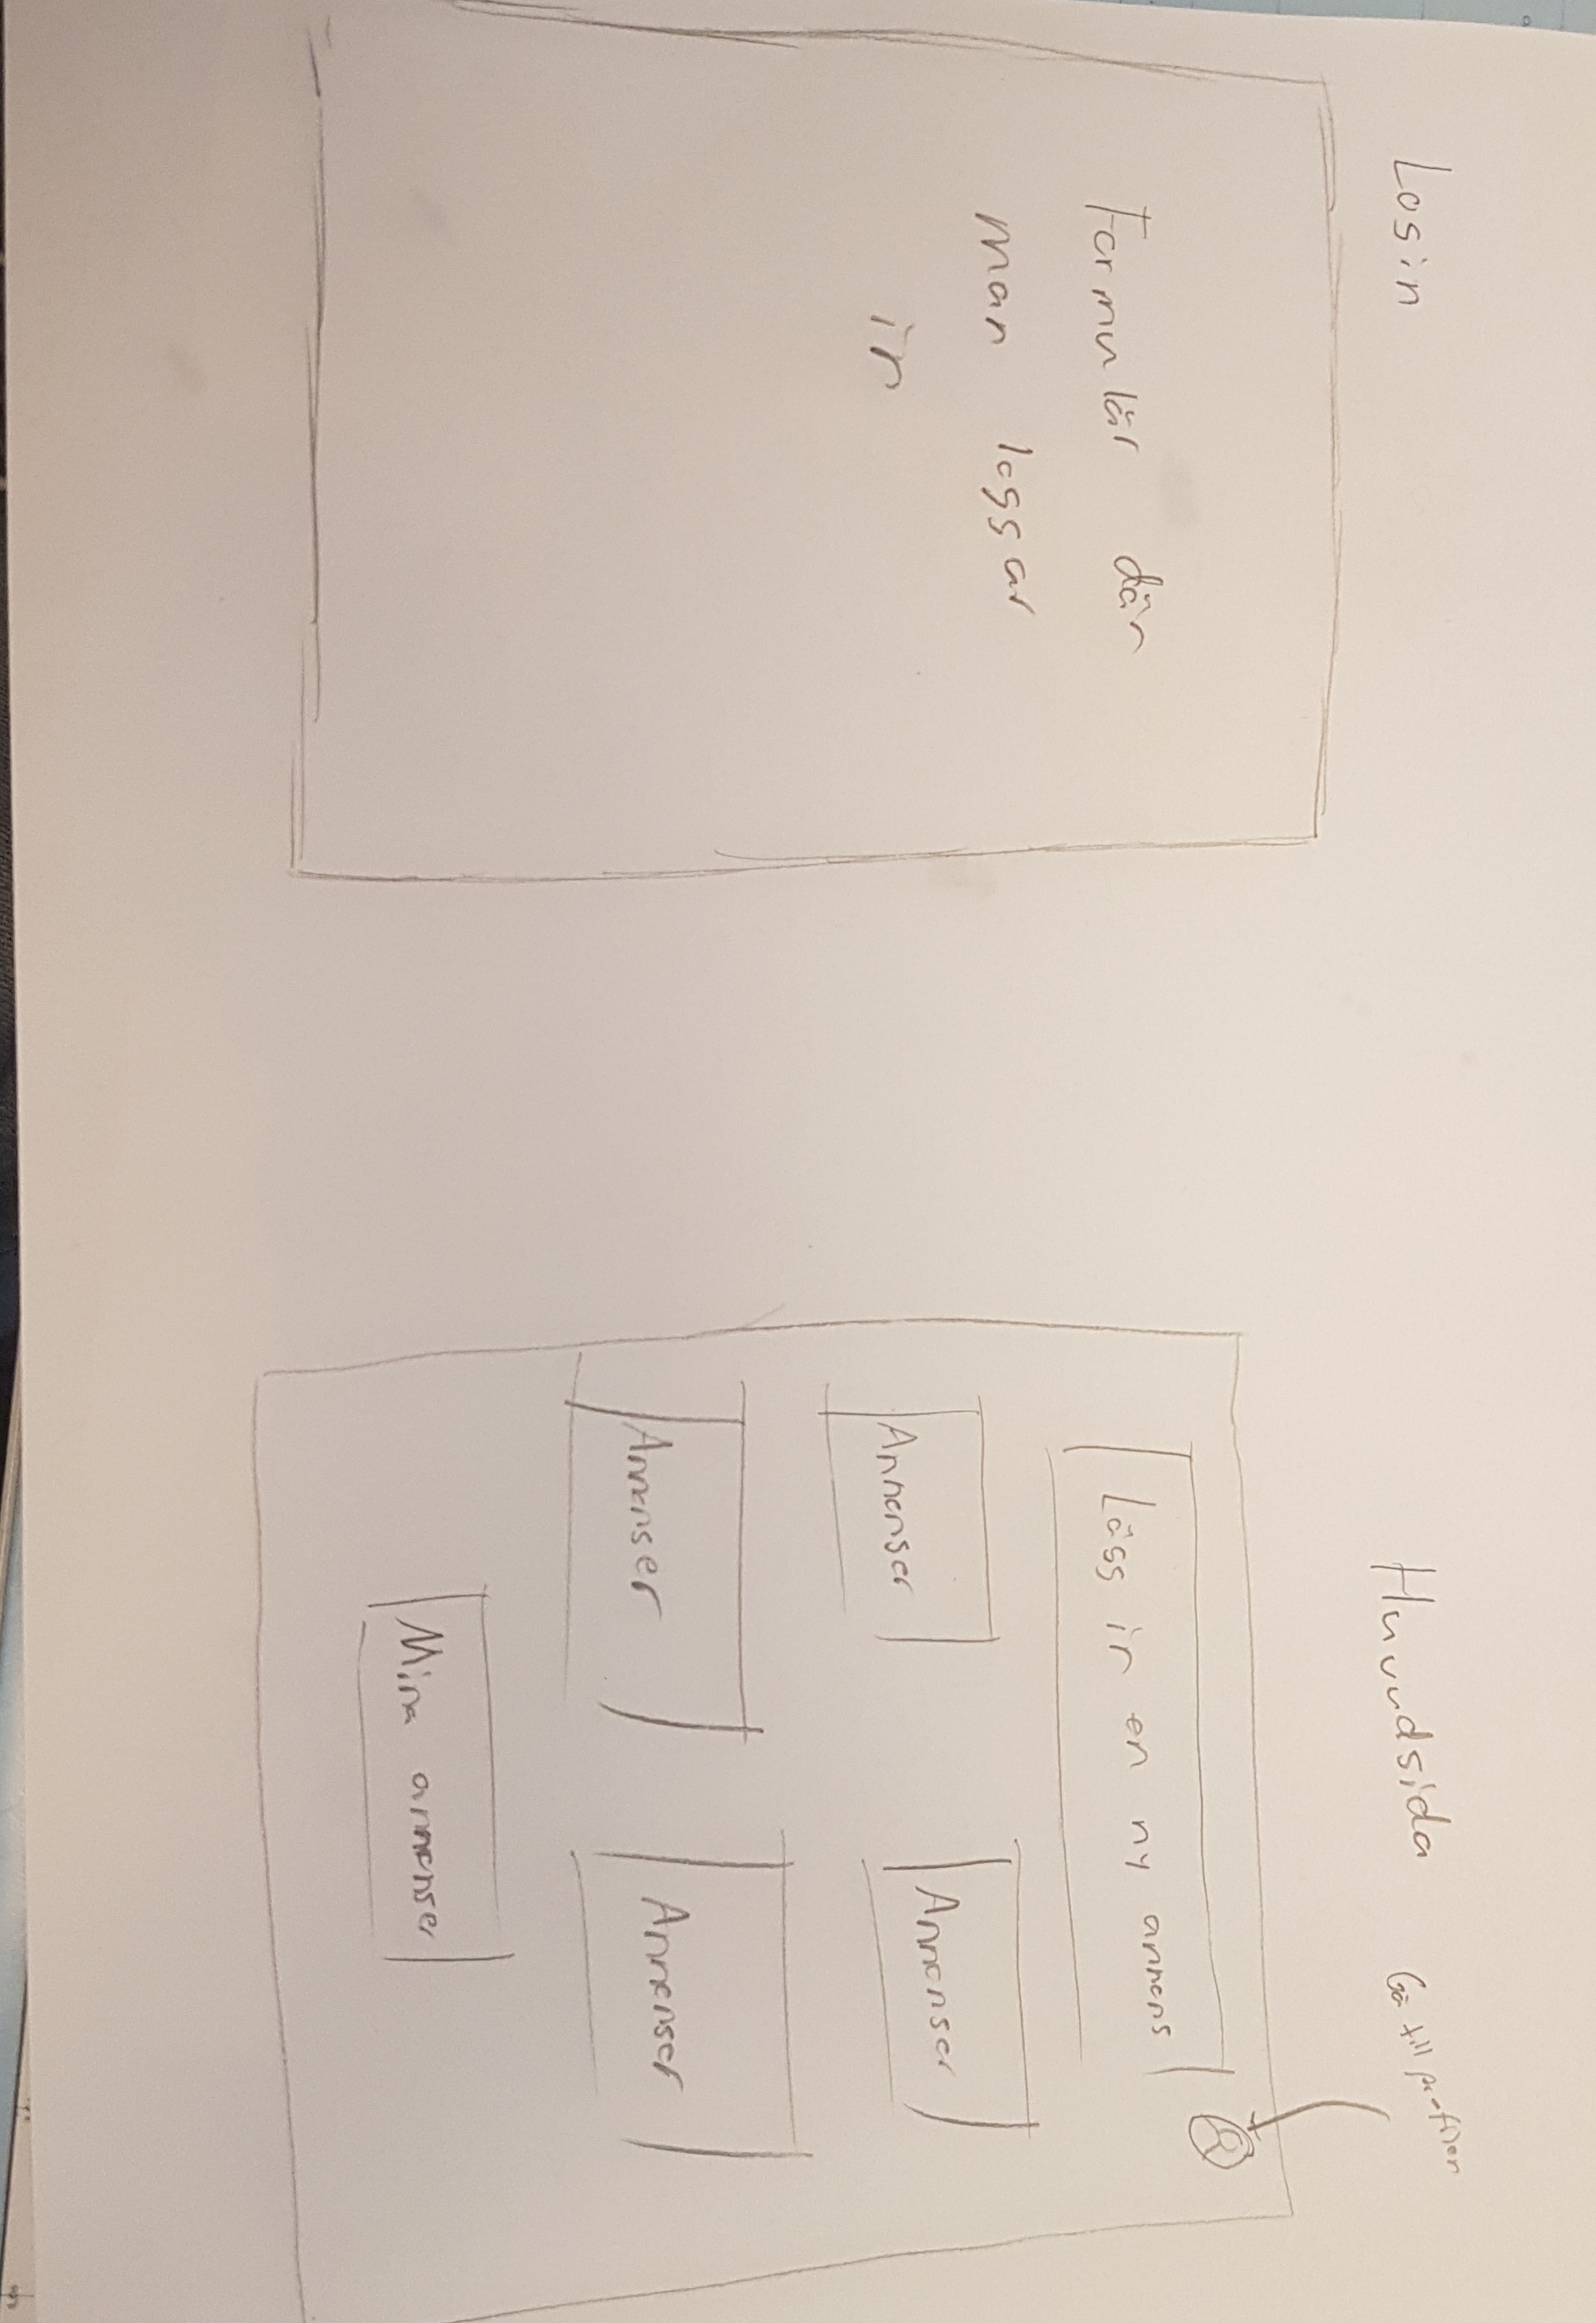 Login
Formulär där
man loggar
in
Huvudsida
Gå till profilen
Lägg in en ny annons
Annonser
Annonser
Annonser
Annonser
Mina annonser